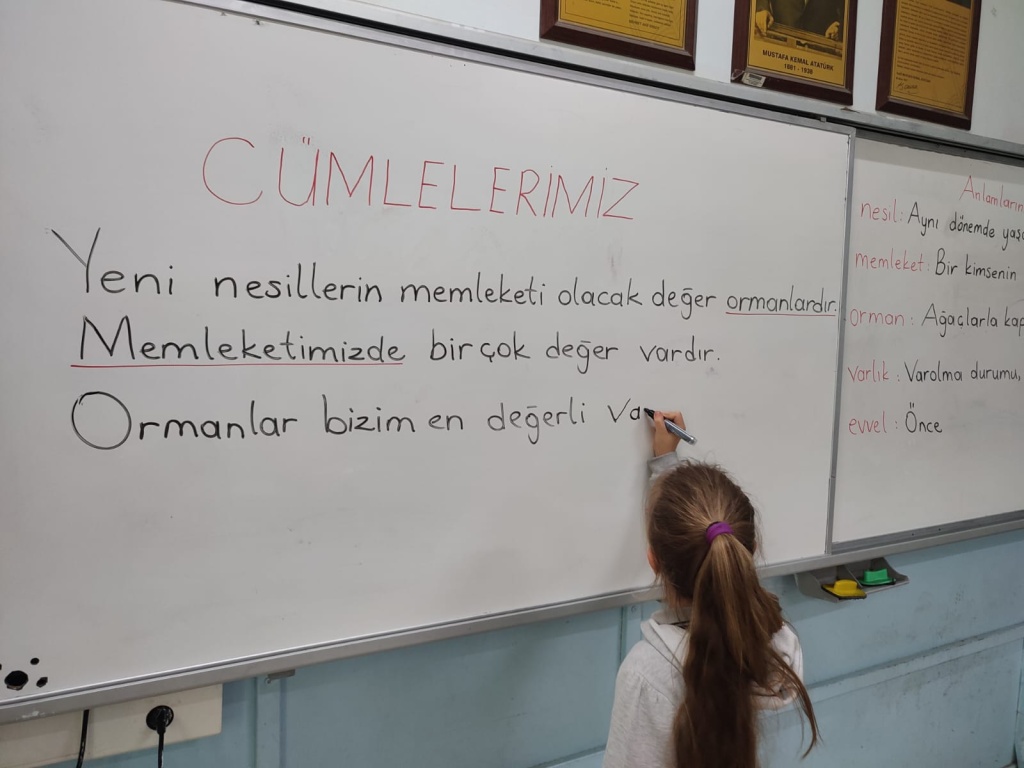 MUSTAFA KEMAL ATATÜRK
1881 - 1938
CÜMLELERİMİZ
Yeni nesillerin memleketi olacak değer ormanlardır.
Memleketimizde birçok değer vardır.
Ormanlar bizim en değerli va
Anlamların
nesil: Aynı dönemde yaşa
memleket: Bir kimsenin
orman: Ağaçlarla kap
varlık: Varolma durumu,
evvel: Önce